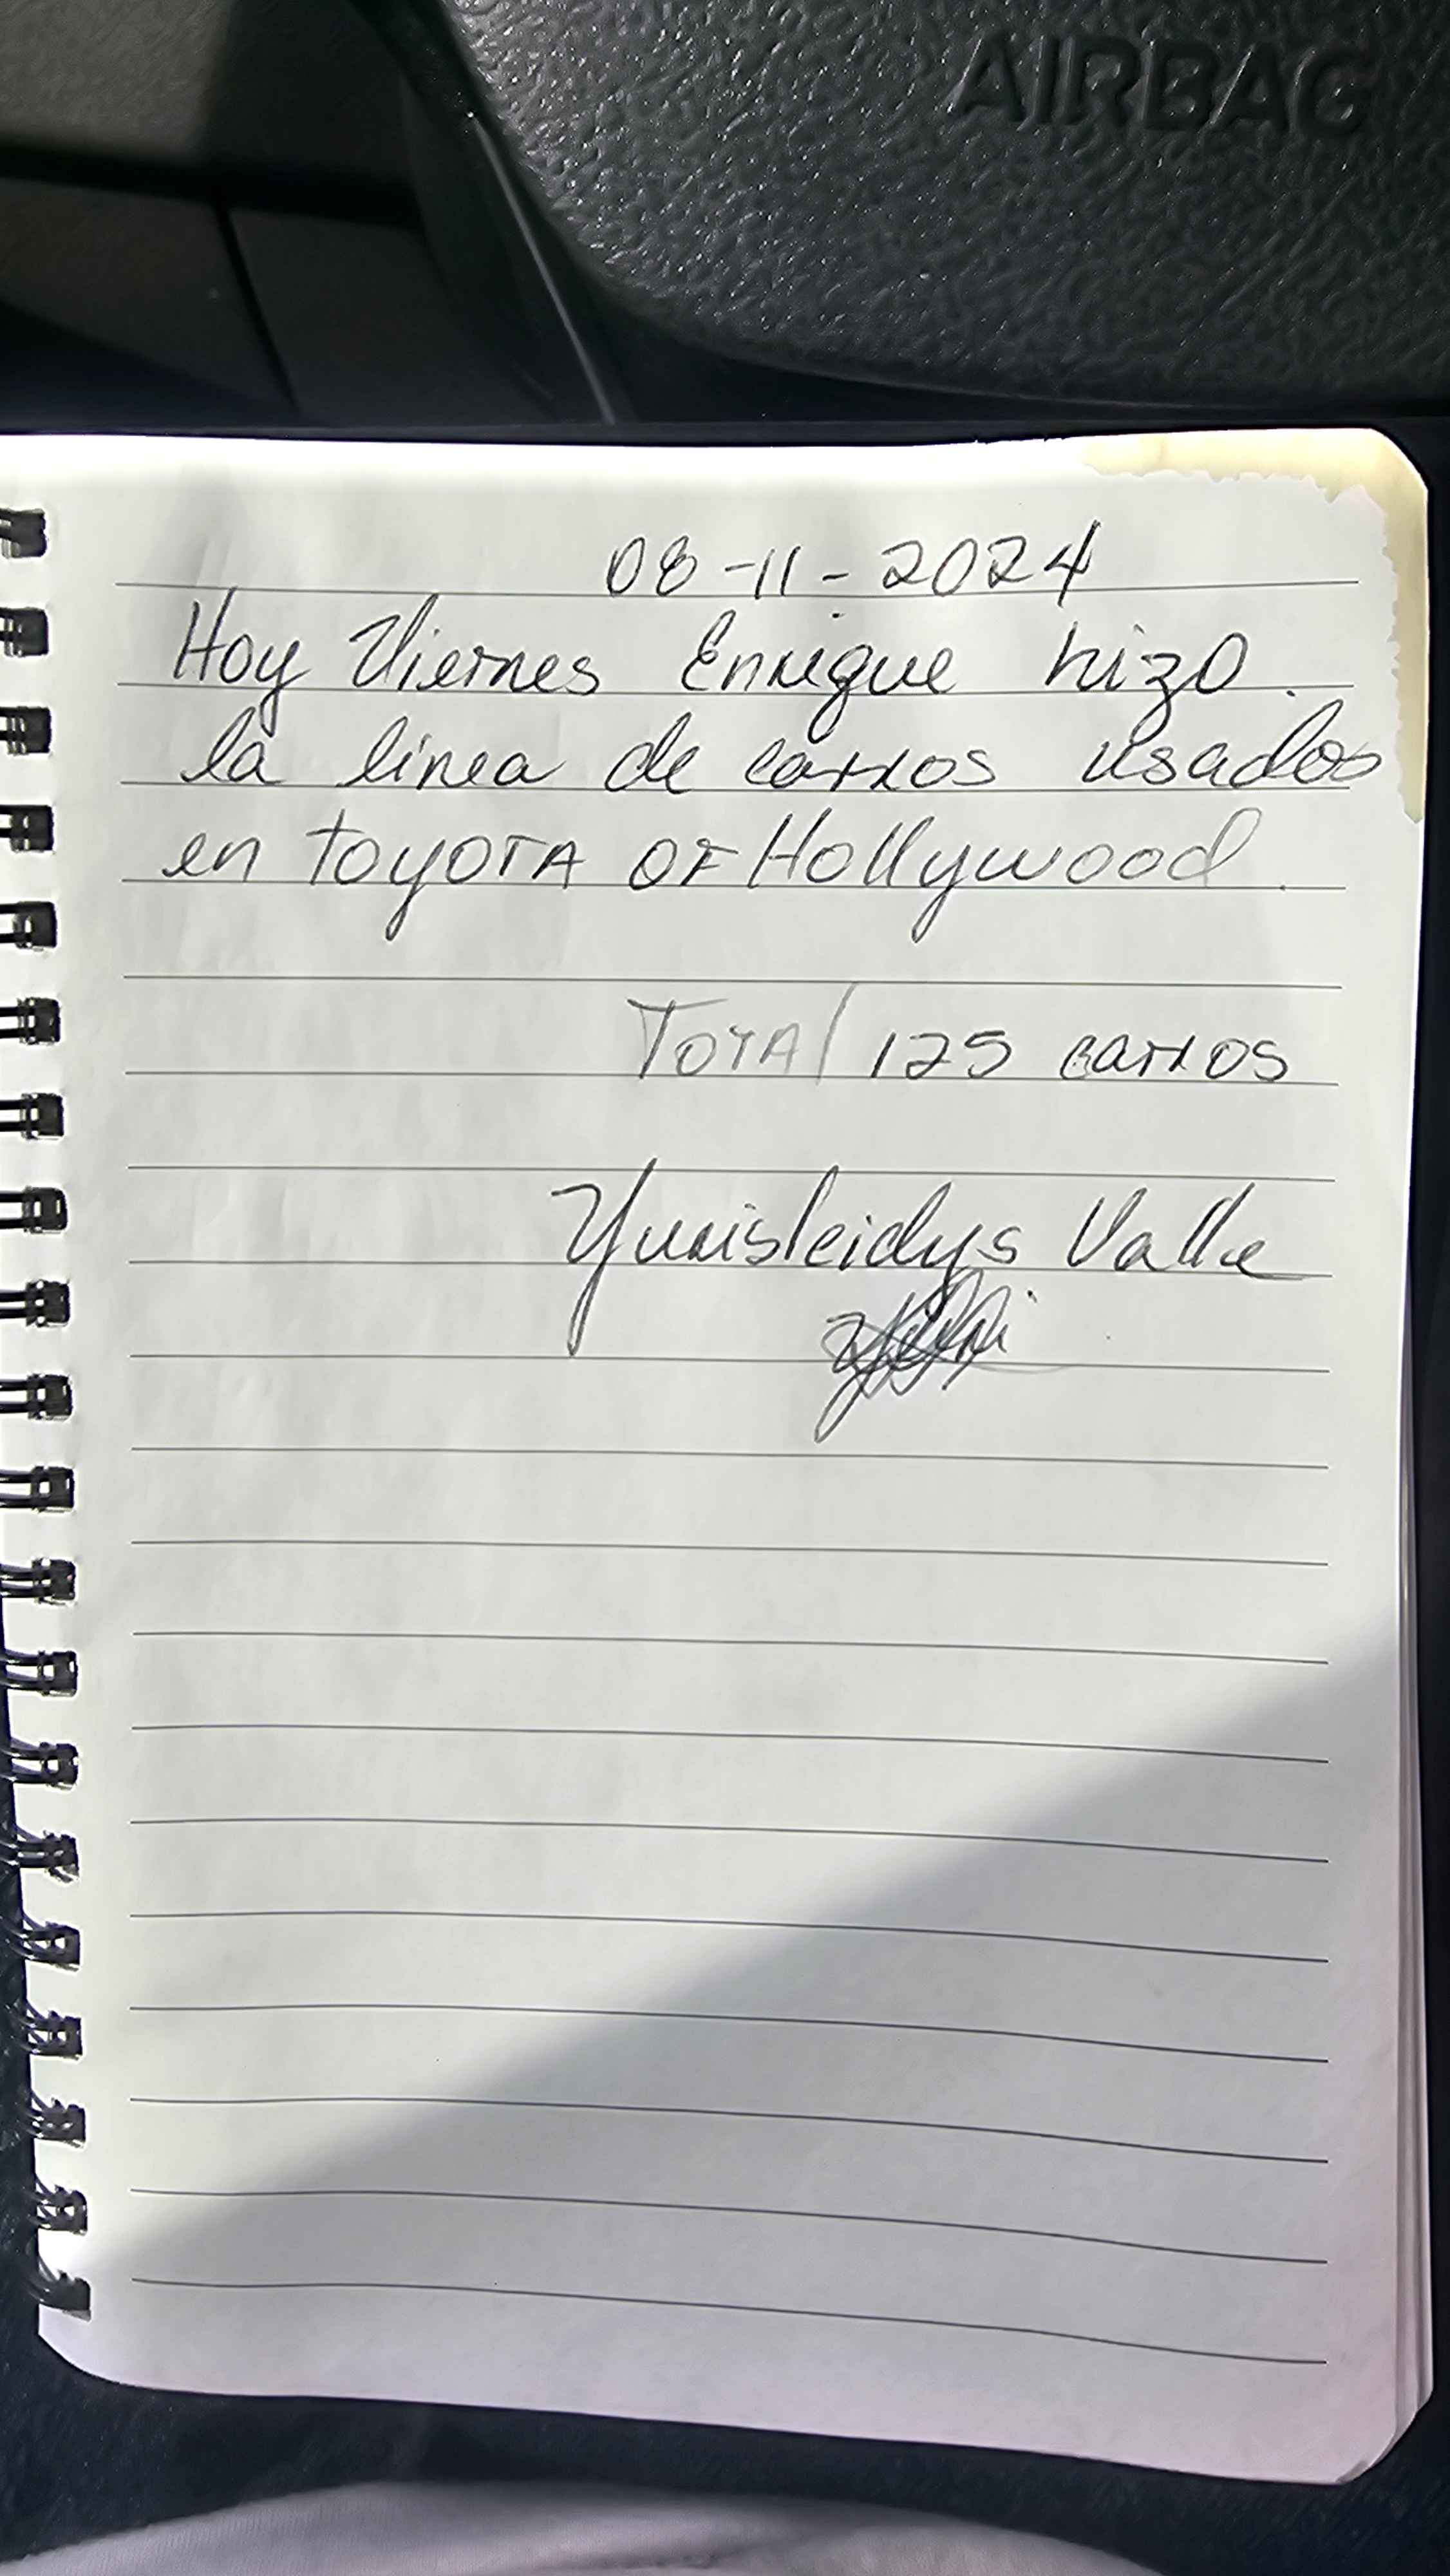 AIRBAG
08-11-2024
Hoy Viernes Enrique hizo.
la linea de carros usados
en toyoTA OF Hollywood.
TOTAl 125 carros
Yunisleidys Valle